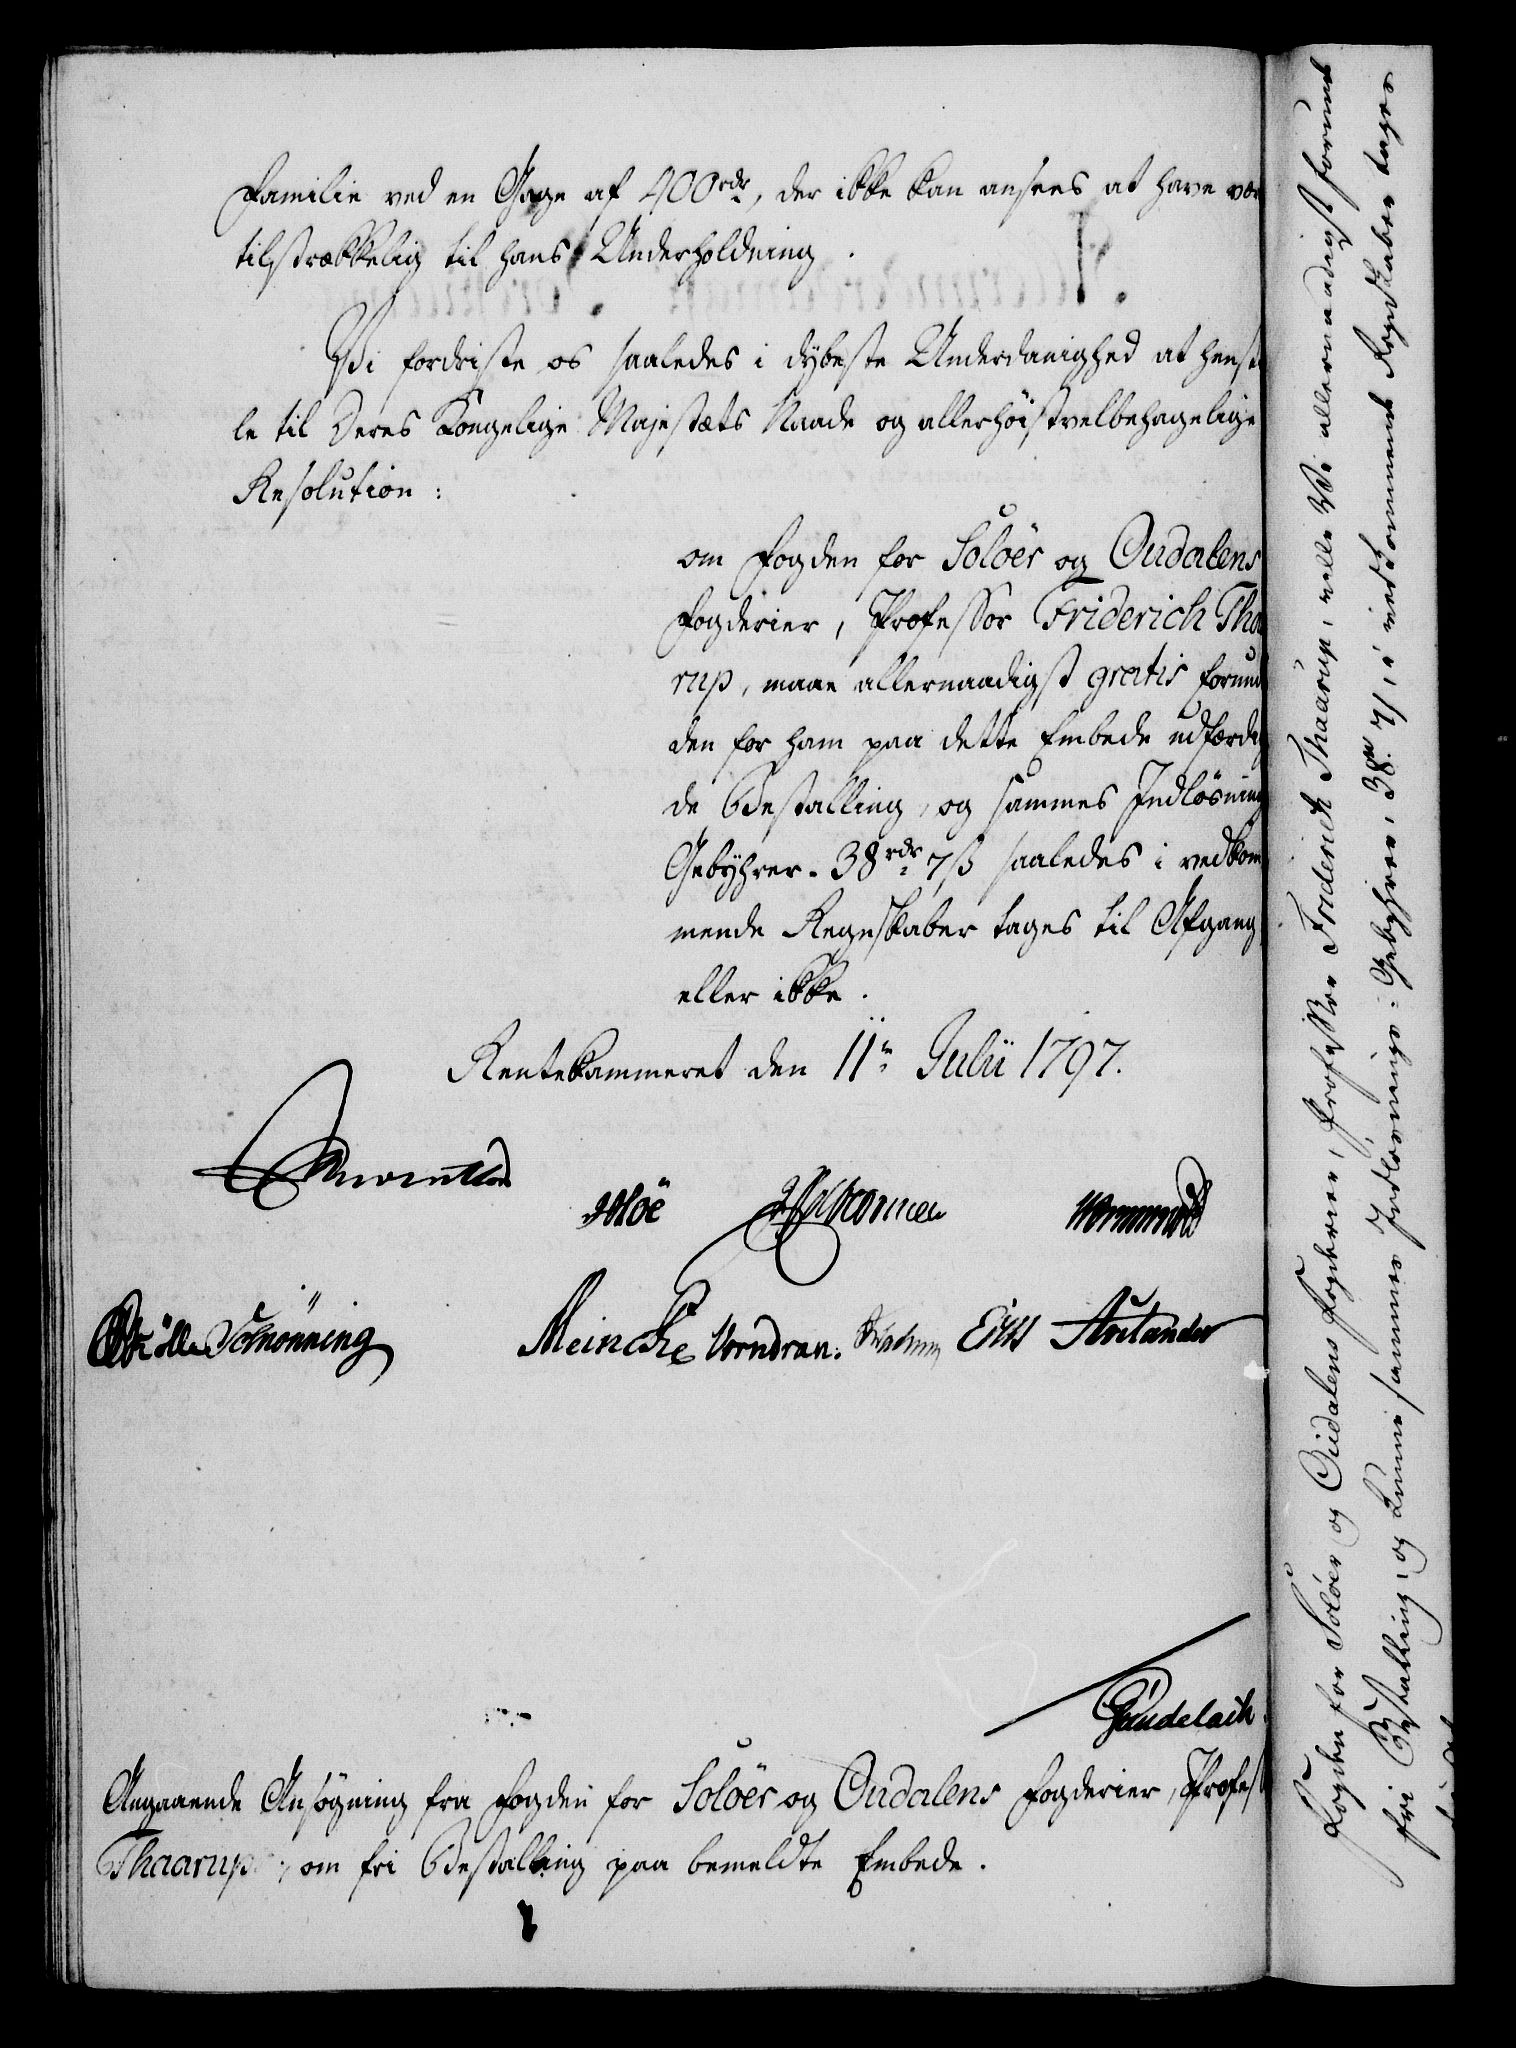 Familie ved en Gage af 400rdr, der ikke kan ansees at have vær
tilstrækkelig til hans Underholdning.
Vi fordriste os saaledes i dybeste Underdanighed at henstil
le til Deres Kongelige Majestæts Naade og allerhöistvelbehagelige
Resolution:
om Fogden for Soloër og Oudalens
Fogderier, Professor Friderich Thaa
rup, maae allernaadigst gratis forund
den for ham paa dette Embede udfærdig
de Bestalling, og sammes Indlösnings
Gebÿhrer. 38rdr 7ß saaledes i vedkom
mende Regnskaber tages til Afgang,
eller ikke.
Rentekammeret den 11te Julii 1797.
Meincke Vorndran.
Schönning
Angaaende Ansögning fra Fogden for Soloër og Oudalens Fogderier, Profess
Thaarup, om fri Bestalling paa bemeldte Embede.
Fogden for Soloër og Oudalens Fogderier, Professor Friderich Thaarup, ville Vi allernaadigst forunt
fri Bestalling, og kunne sammes Indlösnings-Gebÿhrer, 38rd 7ß, i vedkommende Regnskaber tages